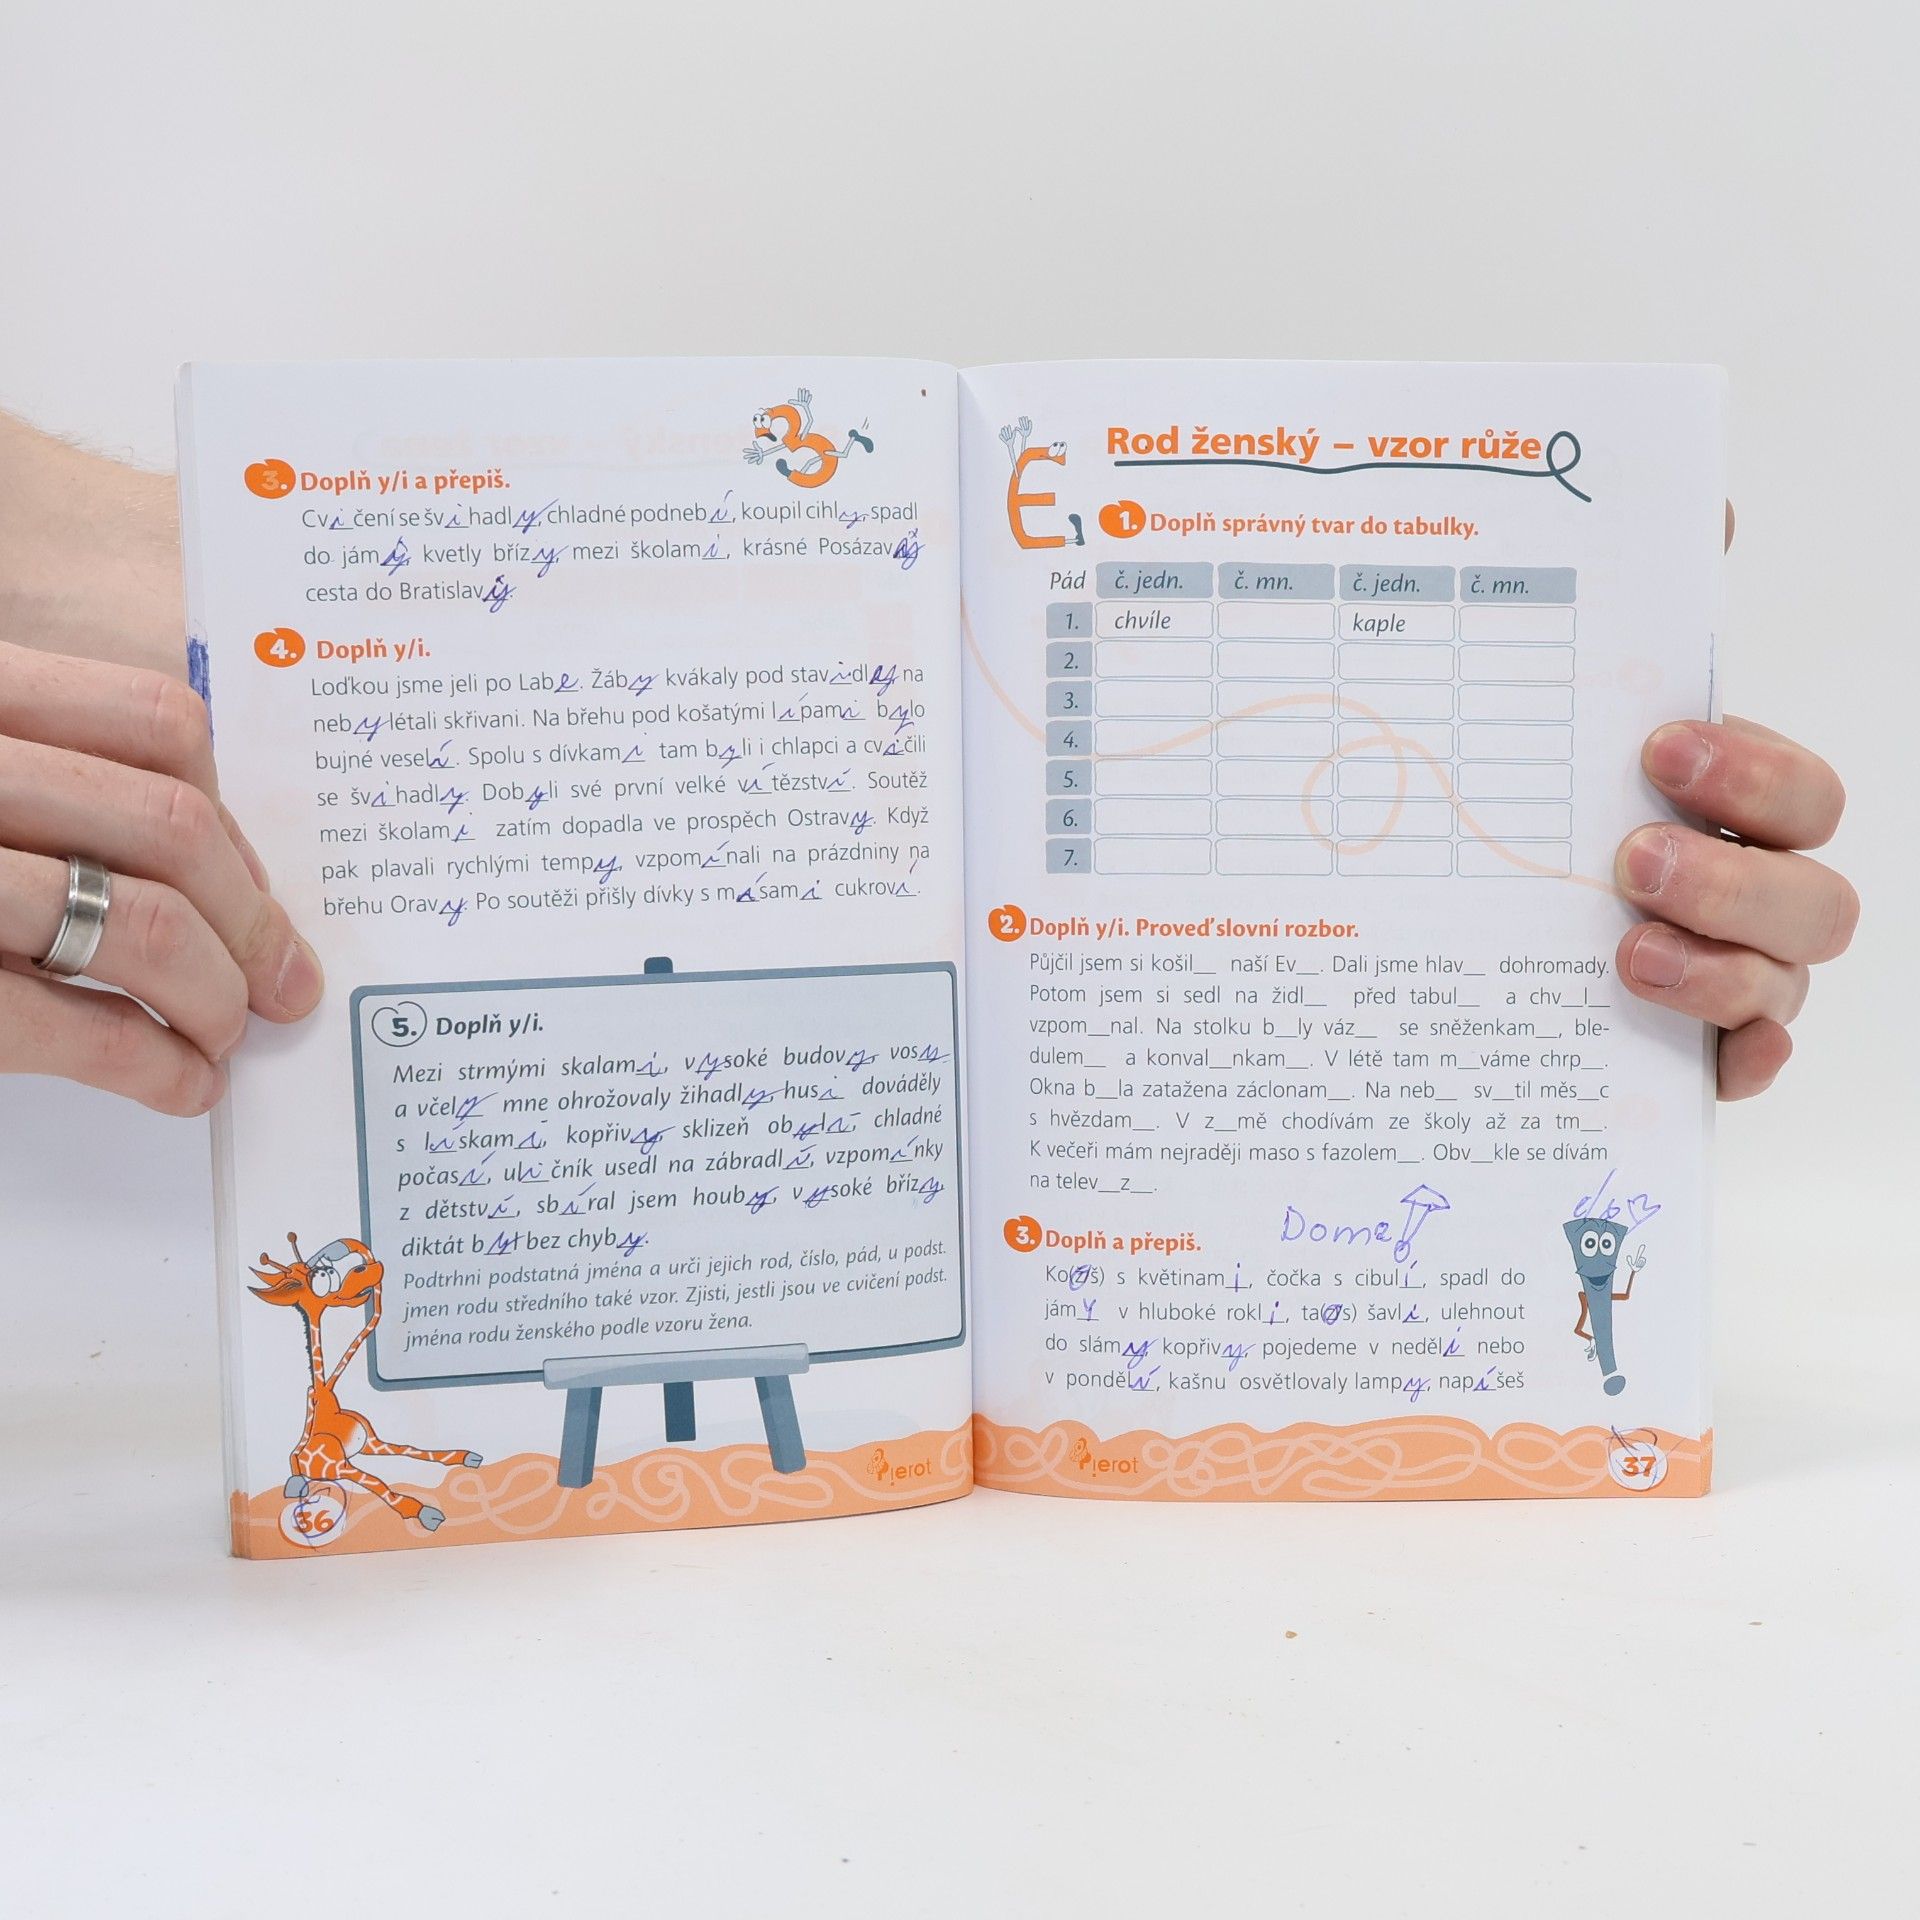 3. Doplň y/i a přepiš.
Cvičení se švihadly, chladné podnebí, koupil cihly, spadl
do jámy, kvetly břízy, mezi školami, krásné Posázav
cesta do Bratislavy.
4. Doplň y/i.
Loďkou jsme jeli po Labe. Žáby kvákaly pod stavidly, na
neby létali skřivani. Na břehu pod košatými lípami bylo
bujné veselí. Spolu s dívkami tam byli i chlapci a cvičili
se švihadly. Dobyli své první velké vítězství. Soutěž
mezi školami zatím dopadla ve prospěch Ostravy. Když
pak plavali rychlými tempy, vzpomínali na prázdniny na
břehu Oravy. Po soutěži přišly dívky s mísami cukroví.
5. Doplň y/i.
Mezi strmými skalami, vysoké budovy, vosy
a včely mne ohrožovaly žihadly, husi dováděly
s lískami, kopřivy, sklizeň obylí, chladné
počasí, uličník usedl na zábradlí, vzpomínky
z dětství, sbíral jsem houby, vysoké břízy,
diktát byl bez chyby.
Podtrhni podstatná jména a urči jejich rod, číslo, pád, u podst.
jmen rodu středního také vzor. Zjisti, jestli jsou ve cvičení podst.
jména rodu ženského podle vzoru žena.
Pierot
36
Rod ženský – vzor růže
1. Doplň správný tvar do tabulky.
Pád č. jedn. č. mn. č. jedn. č. mn.
1. chvíle kaple
2.
3.
4.
5.
6.
7.
2. Doplň y/i. Proveď slovní rozbor.
Půjčil jsem si košil__ naší Ev__. Dali jsme hlav__ dohromady.
Potom jsem si sedl na židl__ před tabul__ a chv__l__
vzpom__nal. Na stolku b__ly váz__ se sněženkam__, ble-
dulem__ a konval__nkam__. V létě tam m__váme chrp__.
Okna b__la zatažena záclonam__. Na neb__ sv__til měs__c
s hvězdam__. V z__mě chodívám ze školy až za tm__.
K večeři mám nejraději maso s fazolem__. Obv__kle se dívám
na telev__z__.
Doma!
3. Doplň a přepiš.
Ko(z/s) s květinami, čočka s cibulí, spadl do
jámy v hluboké rokli, ta(z/s) šavli, ulehnout
do slámy, kopřivy, pojedeme v neděli nebo
v pondělí, kašnu osvětlovaly lampy, napíšeš
Pierot
37